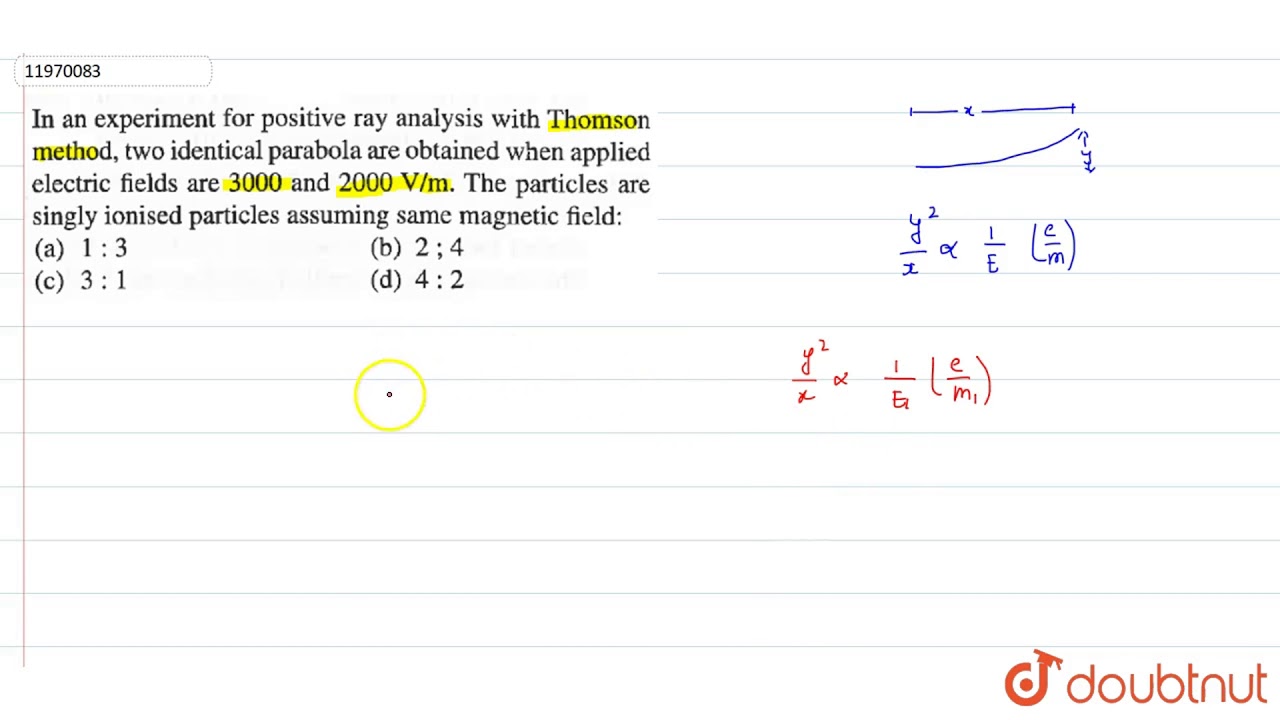 11970083
In an experiment for positive ray analysis with Thomson
method, two identical parabola are obtained when applied
electric fields are 3000 and 2000 V/m. The particles are
singly ionised particles assuming same magnetic field:
(a) 1 : 3 (b) 2 ; 4
(c) 3 : 1 (d) 4 : 2
x
y
y²/x ∝ 1/E (e/m)
y²/x ∝ 1/E₁ (e/m₁)
doubtnut